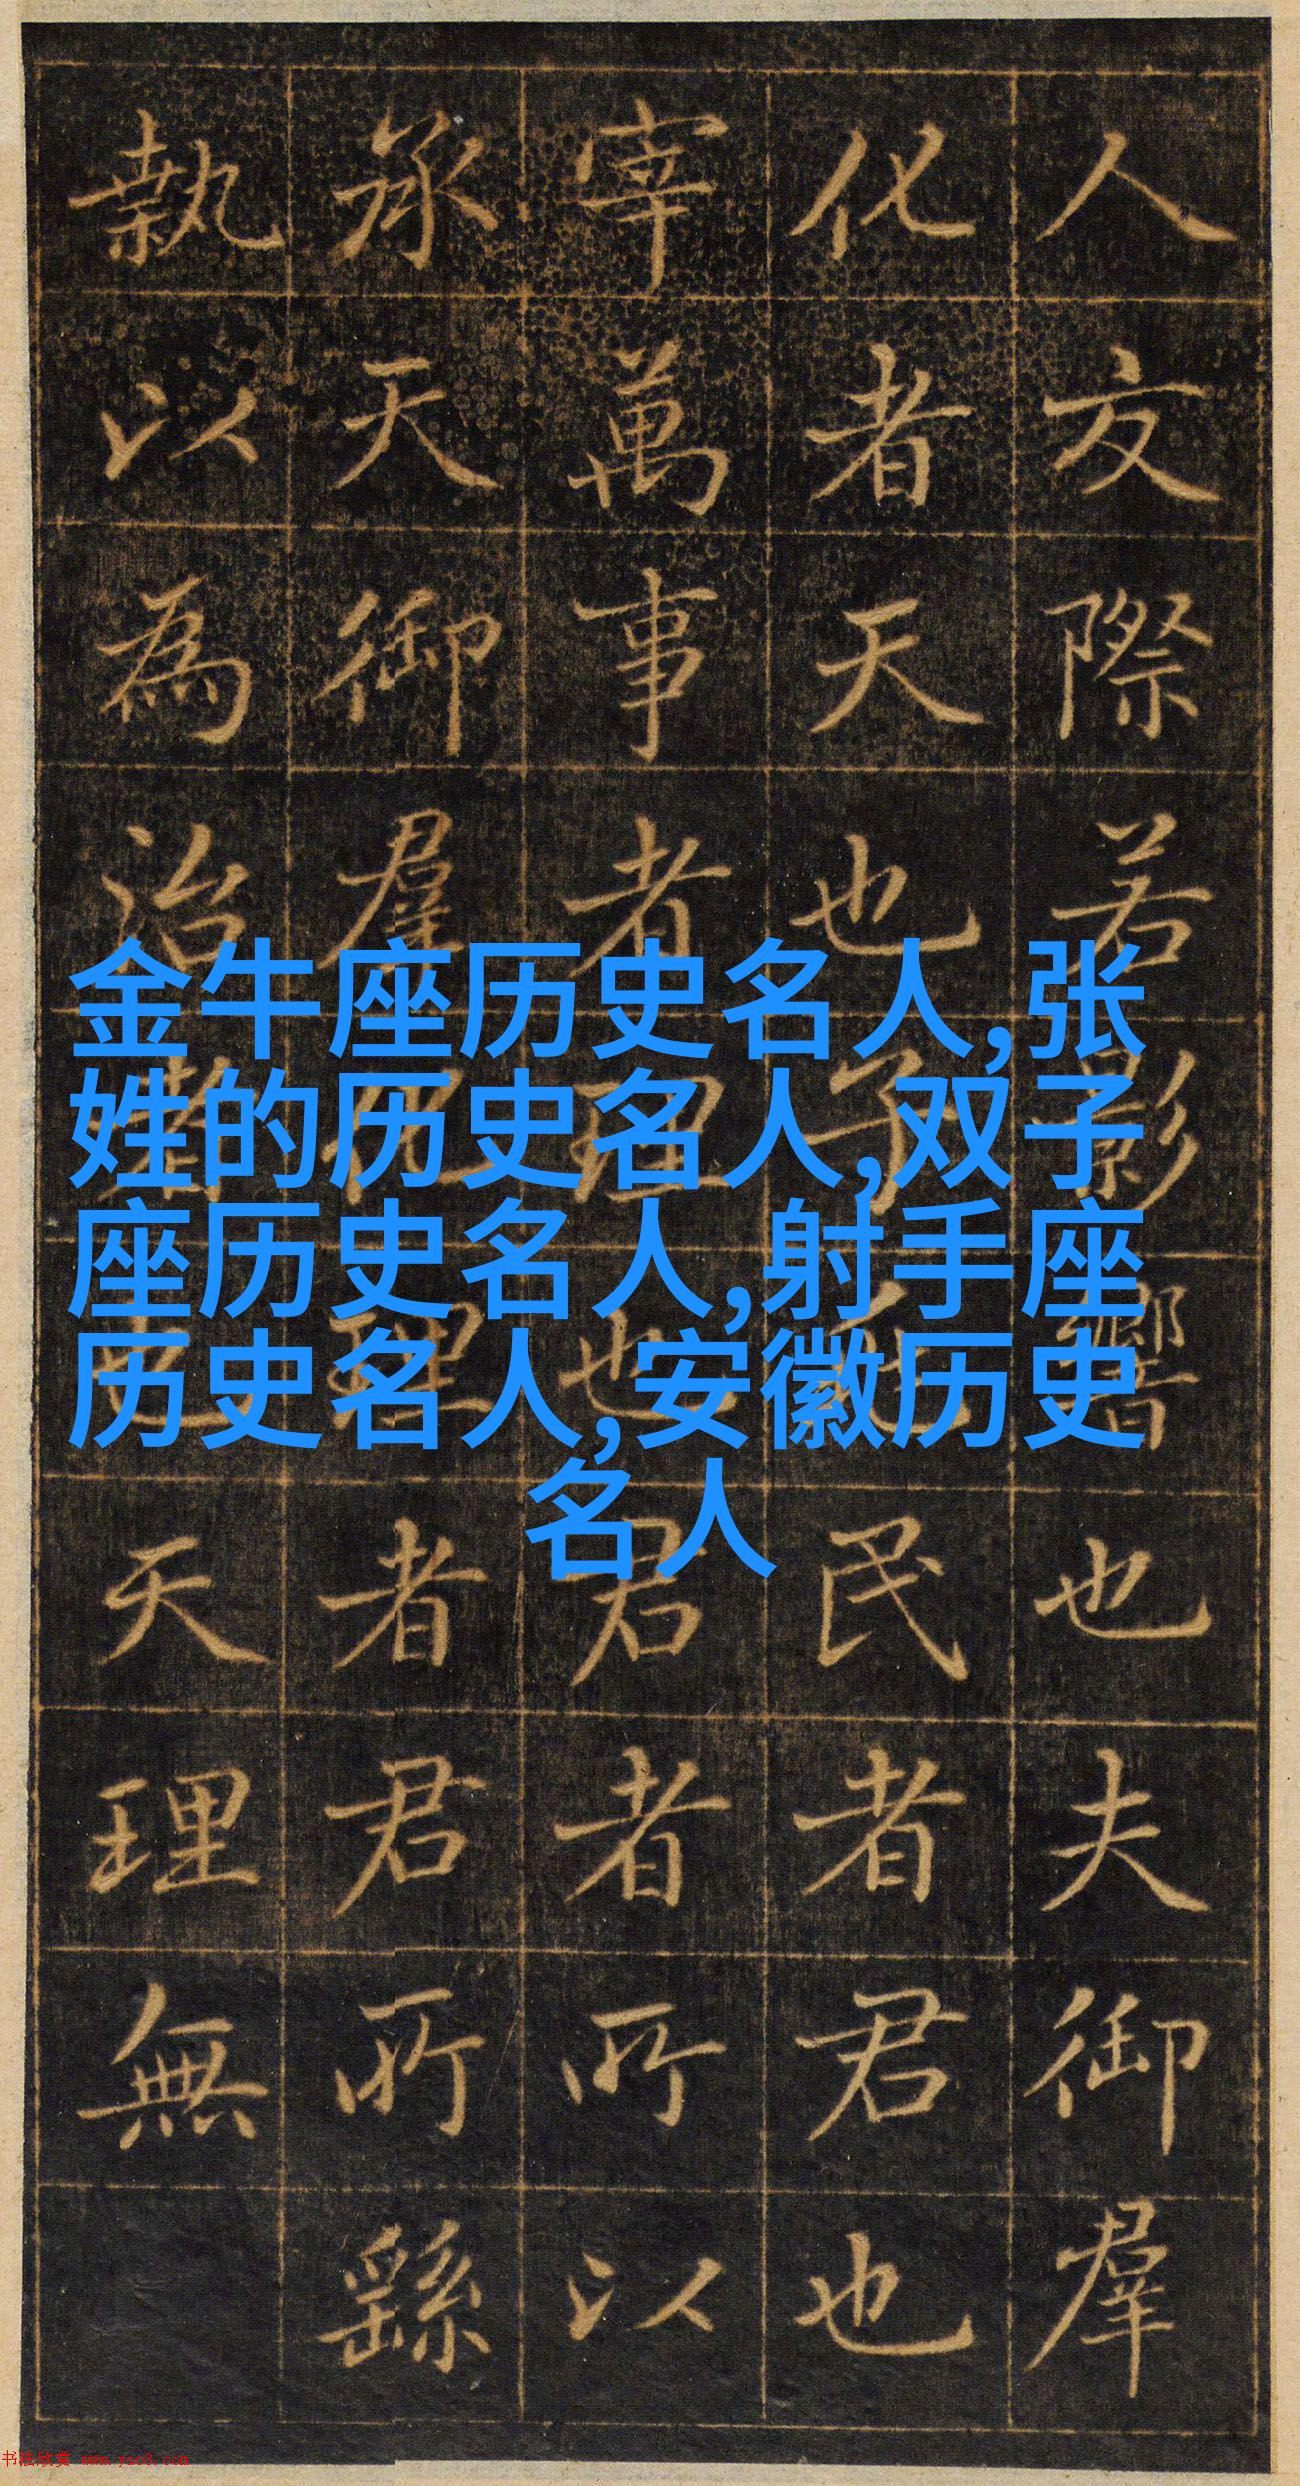 金牛座历史名人,张
姓的历史名人,双子
座历史名人,射手座
历史名人,安徽历史
名人
人友際若影響也夫御羣
化者天也子民者君也
宰萬事者理也君者所以
承天御羣理者君所繇
執以為治也天理無
书法欣赏 www.yac8.com